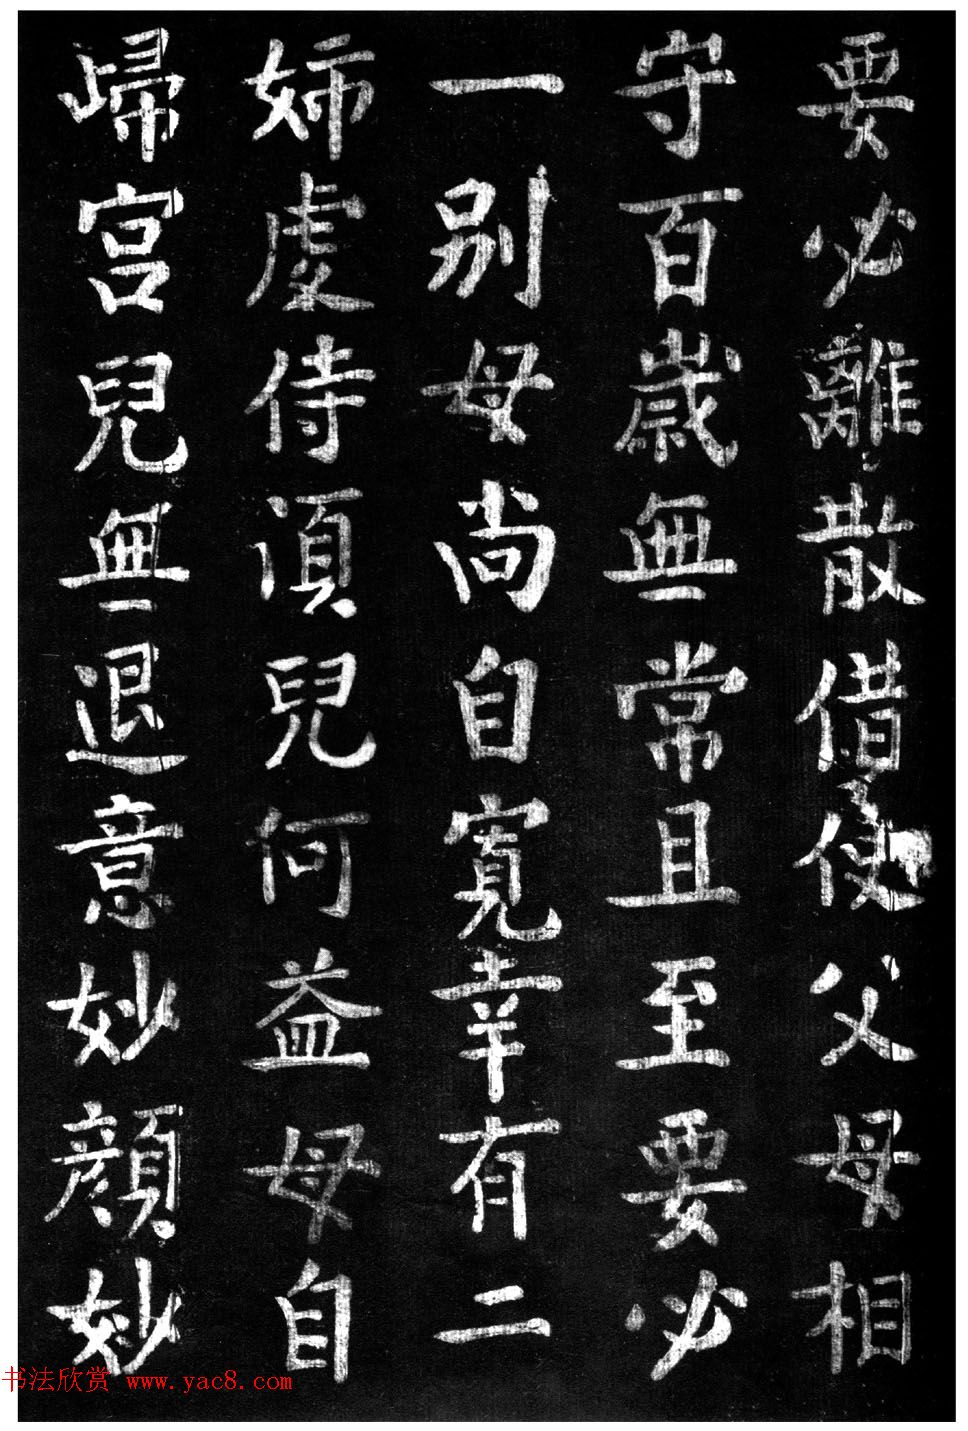 要必離散借使父母相
守百歳無常且至要必
一别母尚自寛幸有二
姉䖏侍湏兒何益母自
歸宫兒無退意妙顔妙
书法欣赏 www.yac8.com